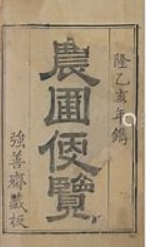 隆乙亥年鐫
農圃便覽
強善齋藏板